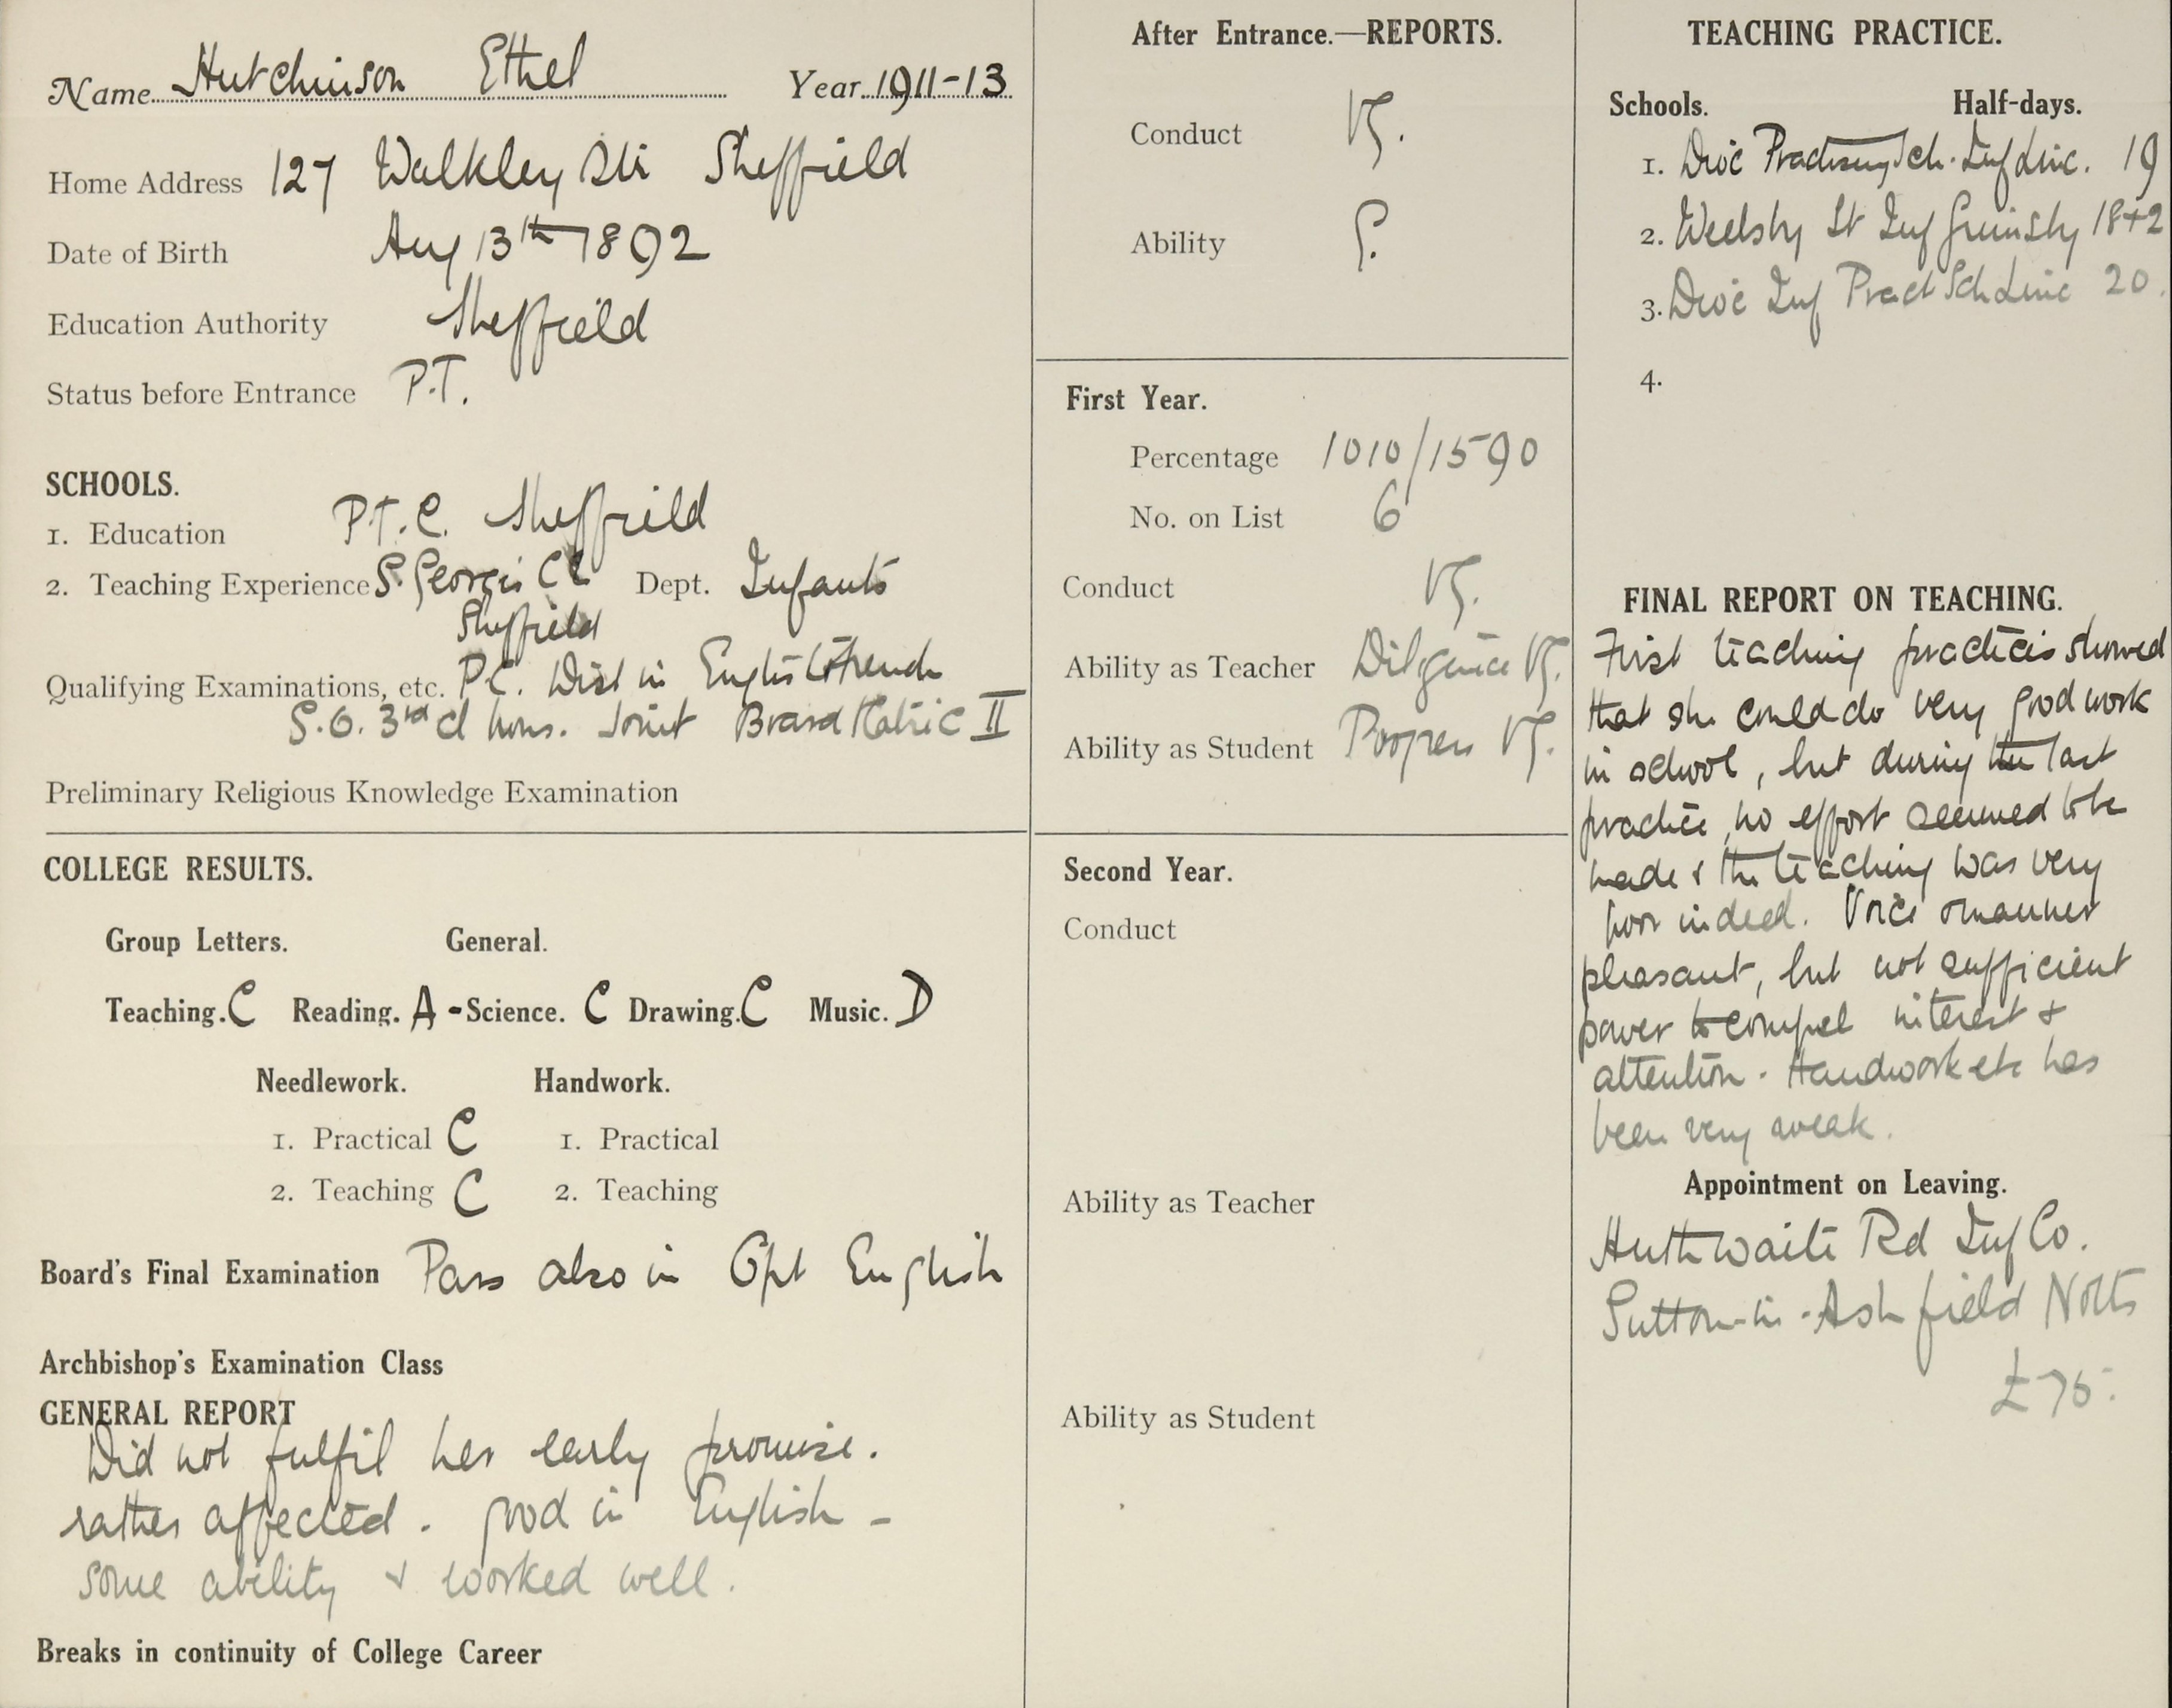 Name Hutchinson Ethel Year 1911-13
Home Address 127 Walkley Sheffield
Date of Birth Aug 13th 1892
Education Authority Sheffield
Status before Entrance P.T.
SCHOOLS.
1. Education P.T.C. Sheffield
2. Teaching Experience S. Georges Dept. Infants
Sheffield
Qualifying Examinations, etc. P.C. Dist in English & French
S.O. 3rd cl hons. Joint Board Matric II
Preliminary Religious Knowledge Examination
COLLEGE RESULTS.
Group Letters. General.
Teaching. C Reading. A - Science. C Drawing. C Music. D
Needlework. Handwork.
1. Practical C 1. Practical
2. Teaching C 2. Teaching
Board's Final Examination Pass also in Opt English
Archbishop's Examination Class
GENERAL REPORT
Did not fulfil her early promise.
rather affected. good in English -
some ability & worked well.
Breaks in continuity of College Career
After Entrance.—REPORTS.
Conduct VG.
Ability G.
First Year.
Percentage 1010/1590
No. on List 6
Conduct VG.
Ability as Teacher Diligence VG.
Ability as Student Progress VG.
Second Year.
Conduct
Ability as Teacher
Ability as Student
TEACHING PRACTICE.
Schools. Half-days.
1. Dioc Practising Sch. Inf Linc. 19
2. Weelsby St Inf Grimsby 18+2
3. Dioc Inf Pract Sch Linc 20.
4.
FINAL REPORT ON TEACHING.
First teaching practices showed
that she could do very good work
in school, but during the last
practice, no effort seemed to be
made & the teaching was very
poor indeed. Voice & manner
pleasant, but not sufficient
power to compel interest &
attention. Handwork etc has
been very weak.
Appointment on Leaving.
Huthwaite Rd Inf Co.
Sutton-in-Ashfield Notts
£75.